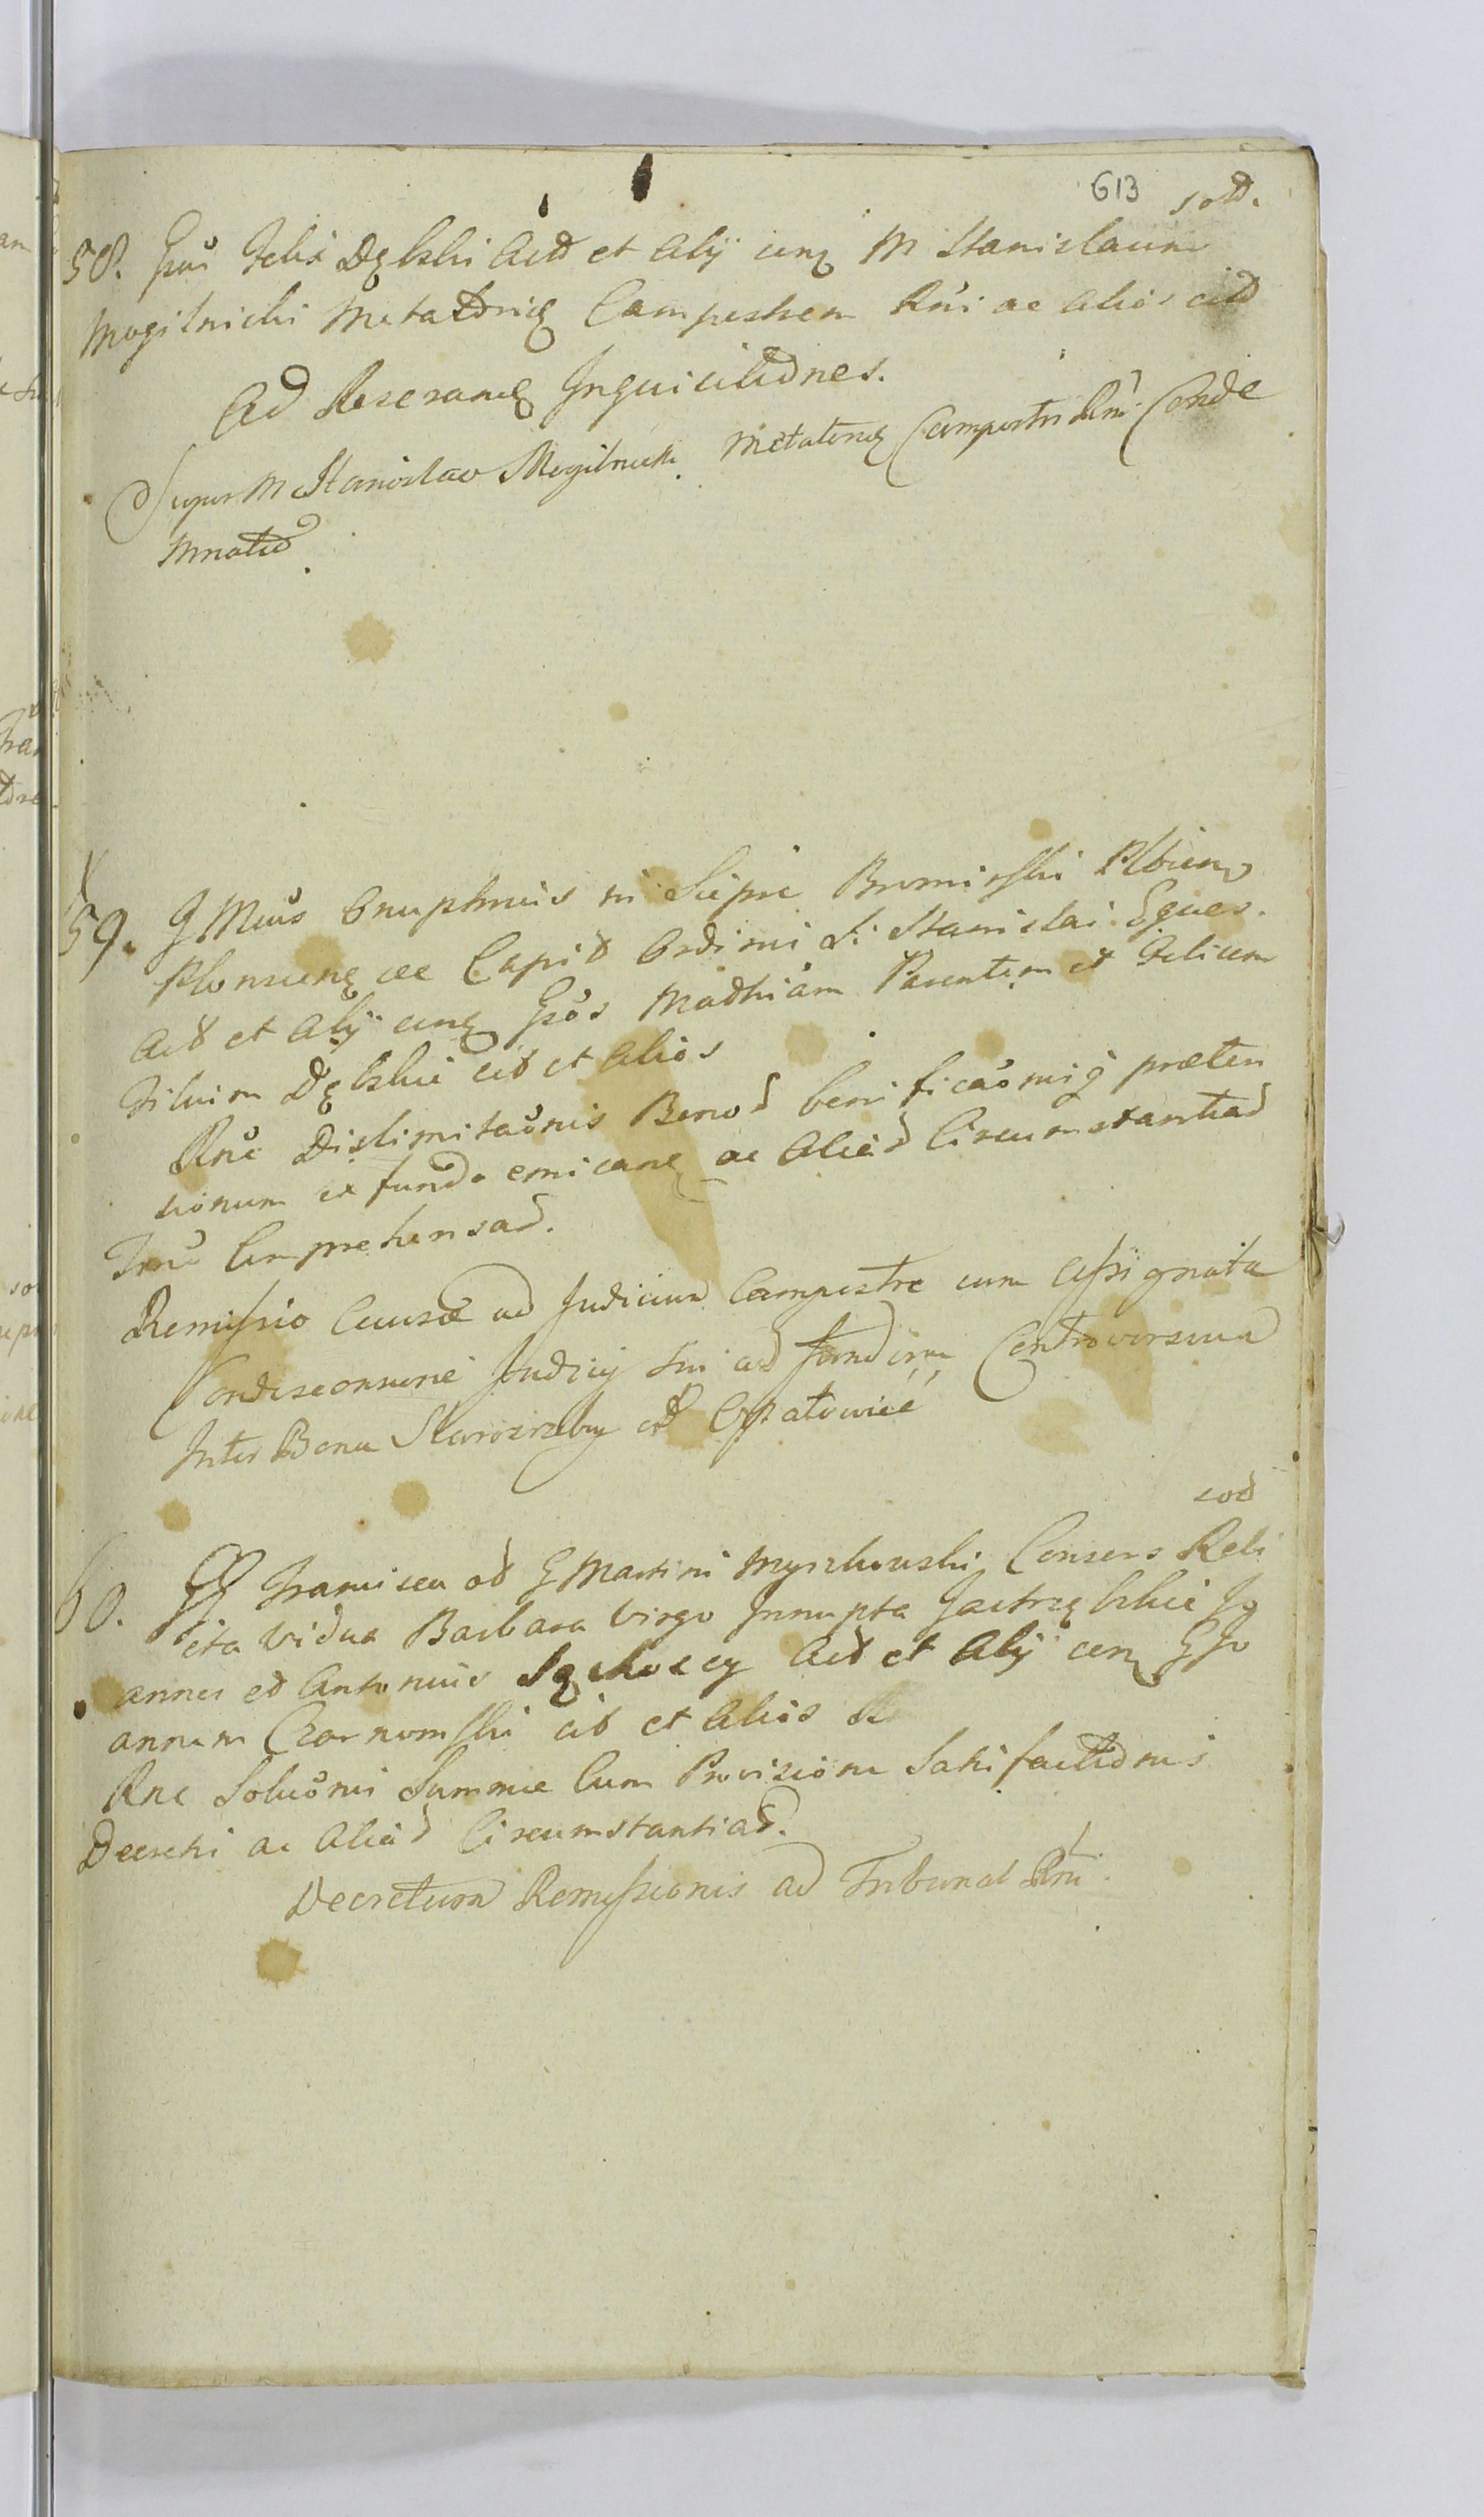 613
sod.
58. Gsus Felix Dębski Actd et Alÿ cunq M Stanislaum
Mogilnicki Metatorie Campestrem Rni ac Alios citd
Ad Reserane Inquisitiones.
Super M Stanislao Mogilnicki Metatorie Campestri Rni Conde
mnatio.
59. J Mcus Onuphrius in Siepie Bromirski Plbium
Plonscene ac Capit Ordini S: Stanislai Eques.
Act et Alÿ cunq Gsos Mathiam Parentem et Felicem
Filium Dębskie cit et Alios
Rne Dislimitaonis Bonod verificaonniq præten
sionum ex fundo emicane ac Aliad Circumstantiad
Trno Comprehensad.
Remissio Causæ ad Judicium Campestre cum Assignata
Condescensione Judicÿ sui ad fundum Controversum
Inter Bona Staroźreby et Opatowiec
sod
60. GG Francisca od G Martini Myszkowski Consors Reli
cta Vidua Barbara Virgo Innupta Jastrzębskie Jo
annes et Antonius Sęchoccy Act et Alÿ cunq G Jo
annem Czarnomski cit et Alios
Rne Soluonis Summæ Cum Provisione Satisfactionis
Decreti ac Aliad Circumstantiad.
Decretum Remissionis ad Tribunal Rni.